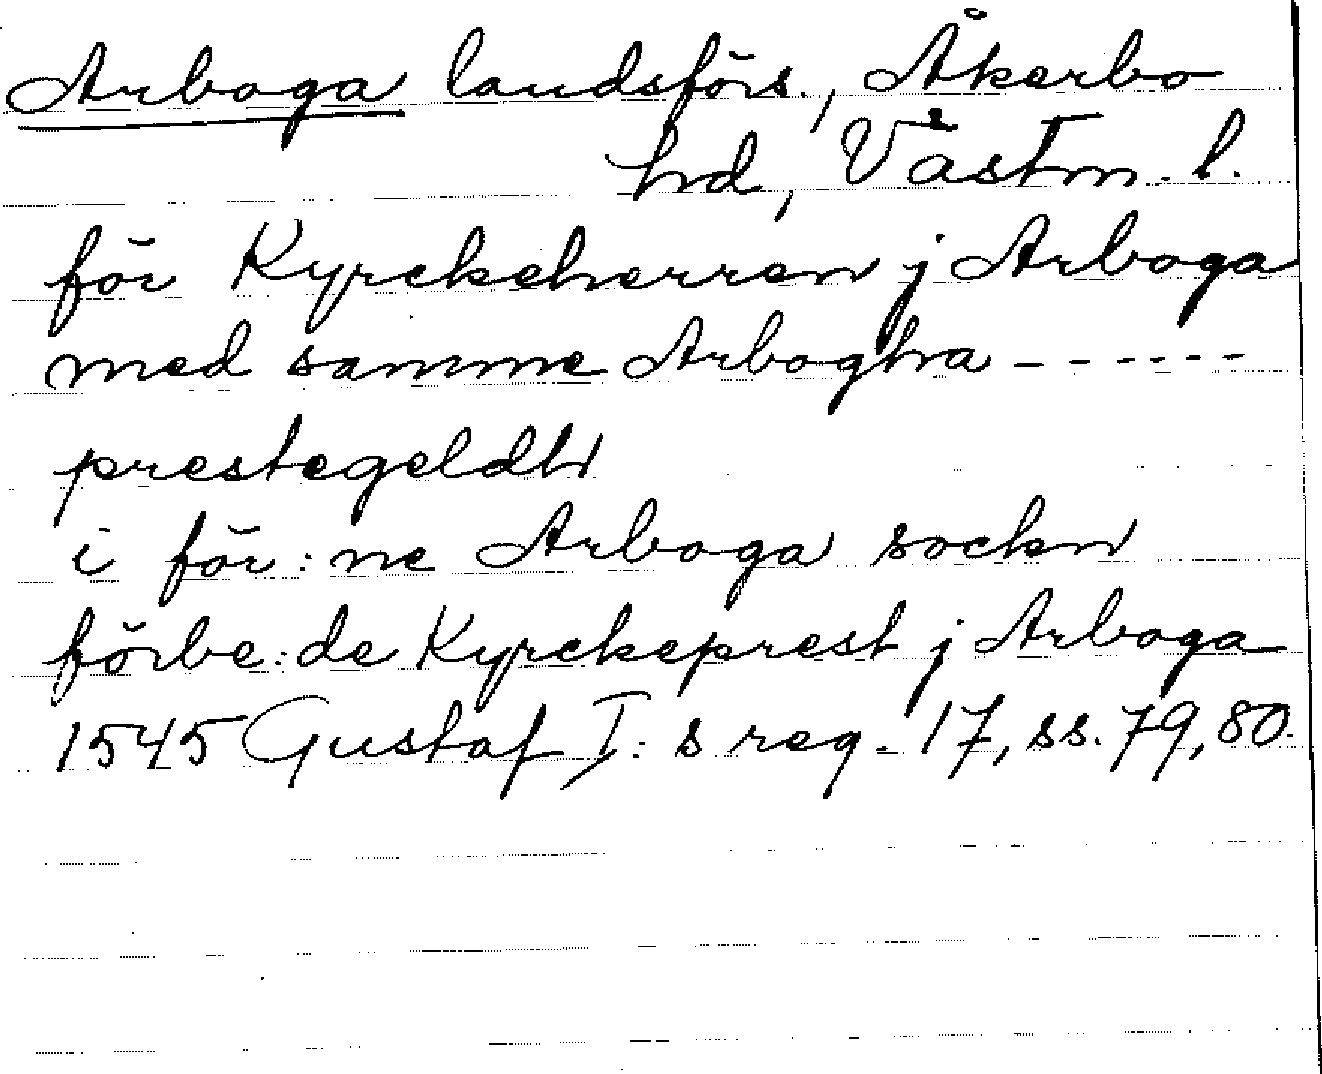 Arboga landsförs., Åkerbo
hd, Västm. l.
för Kyrckeherren j Arboga
med samme Arbogha ------
prestegeldh
i för:ne Arboga sockn
förbe:de Kyrckeprest j Arboga
1545 Gustaf I:s reg. 17, ss. 79, 80.